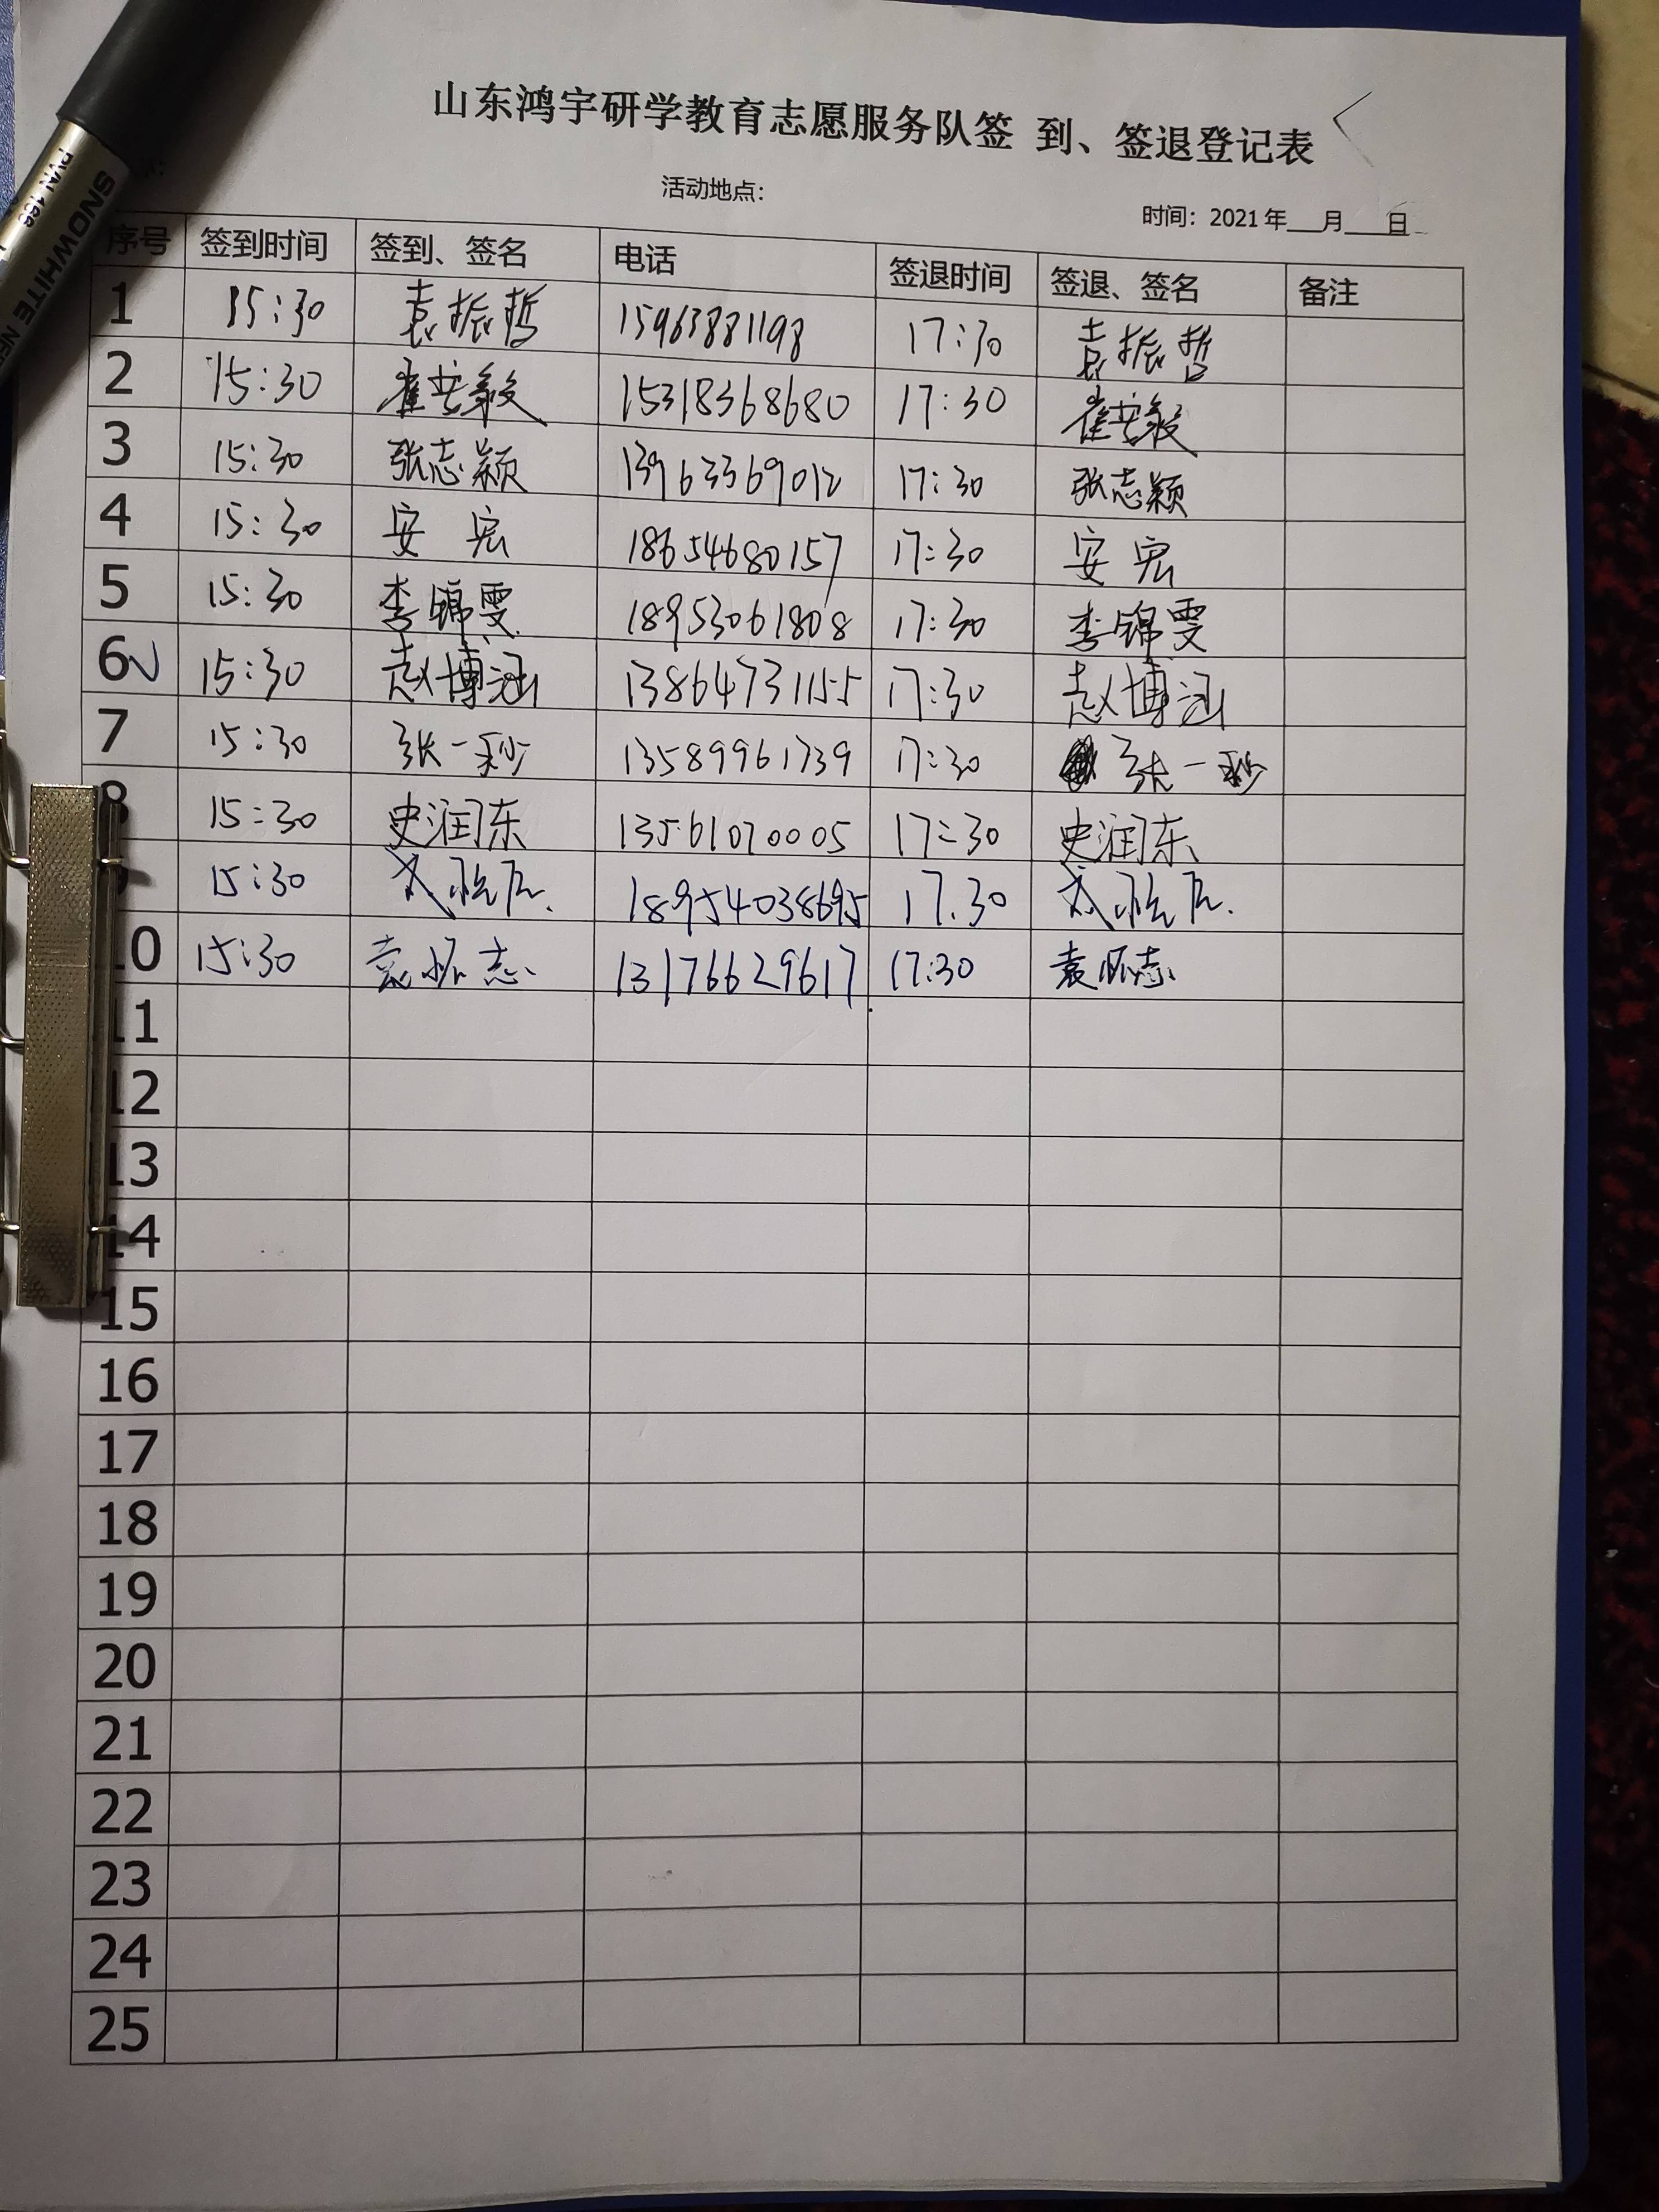 山东鸿宇研学教育志愿服务队签 到、签退登记表
活动地点:
时间: 2021年___月___日
序号 签到时间 签到、签名 电话 签退时间 签退、签名 备注
1 15:30 袁振哲 15963881198 17:30 袁振哲
2 15:30 崔 15318368680 17:30 崔
3 15:30 张志颖 13963369012 17:30 张志颖
4 15:30 安宏 18654680157 17:30 安宏
5 15:30 李锦雯 18953061808 17:30 李锦雯
6 15:30 赵博涵 13864731155 17:30 赵博涵
7 15:30 张一 13589961739 17:30 张一
8 15:30 史润东 13561070005 17:30 史润东
9 15:30 18954038695 17.30
10 15:30 袁怀志 13176629617 17:30 袁怀志
11
12
13
14
15
16
17
18
19
20
21
22
23
24
25
SNOWHITE